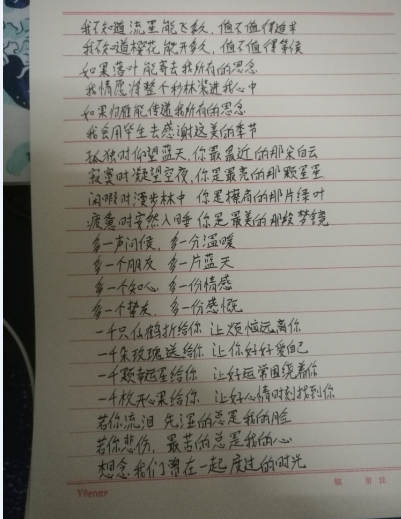 我不知道流星能飞多久，值不值得追求
我不知道樱花能开多久，值不值得等候
如果落叶能寄去我所有的思念
我情愿将整个秋林装进我心中
如果归雁能传递我所有的思念
我会用毕生去感谢这美的季节
孤独时仰望蓝天，你是最近的那朵白云
寂寞时凝望空夜，你是最亮的那颗星星
闲暇时漫步林中 你是横肩的那片绿叶
疲惫时安然入睡 你是最美的那段梦境
多一声问候，多一分温暖
多一个朋友 多一片蓝天
多一个知心 多一份情感
多一个挚友，多一份感慨
一千只仙鹤折给你 让烦恼远离你
一千朵玫瑰送给你 让你好好爱自己
一千颗幸运星给你 让好运常围绕着你
一千枚开心果给你 让好心情时刻找到你
若你流泪 先湿的总是我的脸
若你悲伤，最苦的总是我的心
想念我们曾在一起度过的时光